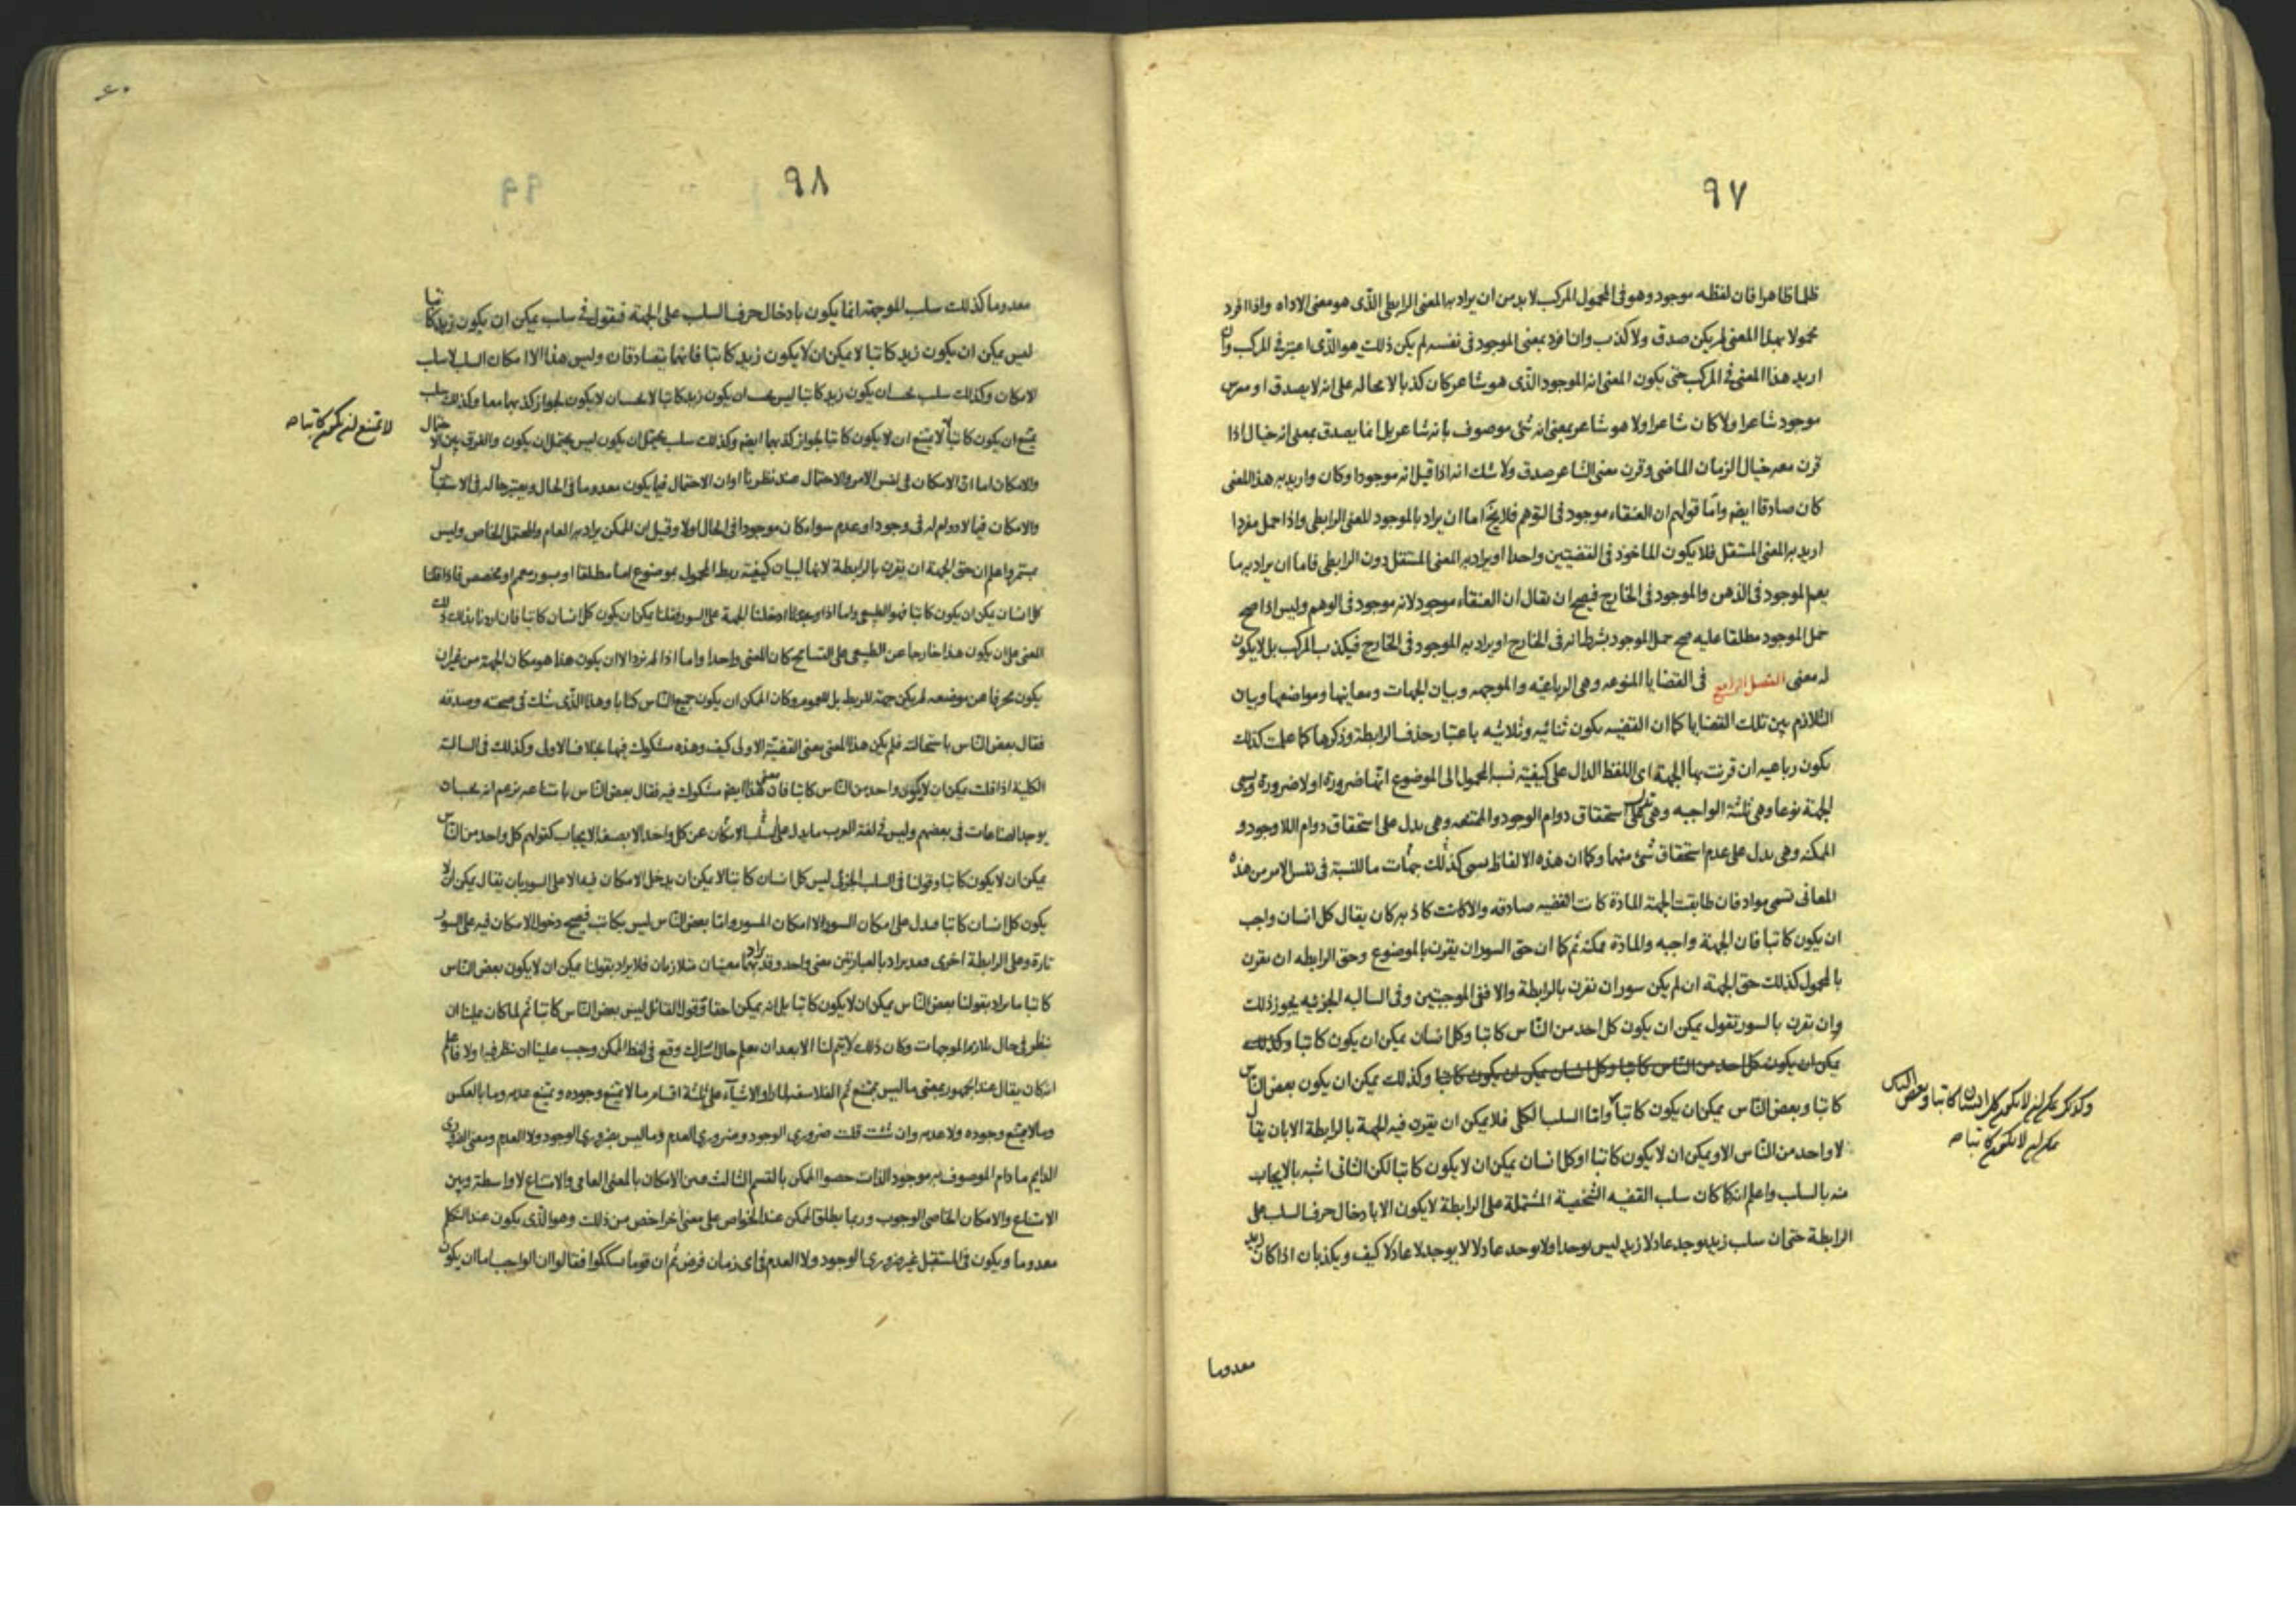 ٩٧
ظلما ظاهرا فان لفظه موجود وهو فى المحمول المركب لا بد من ان يراد به المعنى الرابطى الذى هو معنى الاداه واذا افرد
محمولا بهذا المعنى لم يكن صدق ولا كذب وان افرد بمعنى الموجود فى نفسه لم يكن ذلك هو الذى اعتبر فى المركب وان
اريد هذا المعنى فى المركب حتى يكون المعنى انه الموجود الذى هو شاعر كان كذبا لا محاله على انه لا يصدق اوميرس
موجود شاعرا ولا كان شاعرا ولا هو شاعر بمعنى انه شئ موصوف بانه شاعر بل انما يصدق بمعنى انه خيال اذا
قرن معه خيال الزمان الماضى وقرن معنى الشاعر صدق ولا شك انه اذا قيل انه موجودا وكان واريد به هذا المعنى
كان صادقا ايضا واما قولهم ان العنقاء موجود فى التوهم فلا يخ اما ان يراد بالموجود المعنى الرابطى واذا حمل مفردا
اريد به المعنى المستقل فلا يكون الماخوذ فى القضيتين واحدا او يراد به المعنى المستقل دون الرابطى فاما ان يراد به ما
يعم الموجود فى الذهن والموجود فى الخارج فيصح ان يقال ان العنقاء موجود لانه موجود فى الوهم وليس اذا صح
حمل الموجود مطلقا عليه صح حمل الموجود بشرط انه فى الخارج او يراد به الموجود فى الخارج فيكذب المركب بل لا يكون
له معنى الفصل الرابع فى القضايا المنوعه وهى الرباعيه والموجهه وبيان الجهات ومعانيها ومواضعها وبيان
التلازم بين تلك القضايا كما ان القضيه يكون ثنائيه وثلاثيه باعتبار حذف الرابطة وذكرها كما علمت كذلك
يكون رباعيه ان قرنت بها الجهة اى اللفظ الدال على كيفية نسب المحمول الى الموضوع انها ضرورة او لا ضرورة ويسمى
الجهة نوعا وهى ثلثة الواجبه وهى تدل على استحقاق دوام الوجود والممتنعه وهى يدل على استحقاق دوام اللاوجود و
الممكنه وهى يدل على عدم استحقاق شئ منهما وكما ان هذه الالفاظ يسمى كذلك جهات ما للنسبة فى نفس الامر من هذه
المعانى تسمى مواد فان طابقت الجهة المادة كانت القضيه صادقه والا كانت كاذبه كان يقال كل انسان واجب
ان يكون كاتبا فان الجهة واجبه والمادة ممكنه ثم كما ان حق السور ان يقرن بالموضوع وحق الرابطه ان يقرن
بالمحمول كذلك حق الجهة ان لم يكن سور ان تقرن بالرابطة والا ففى الموجبتين وفى السالبه الجزئيه يجوز ذلك
وان تقرن بالسور تقول يمكن ان يكون كل احد من الناس كاتبا وكل انسان يمكن ان يكون كاتبا وكذلك
يمكن ان يكون كل احد من الناس كاتبا وكل انسان يمكن ان يكون كاتبا وكذلك يمكن ان يكون بعض الناس
كاتبا وبعض الناس يمكن ان يكون كاتبا واما السلب الكلى فلا يمكن ان يقرن فيه الجهة بالرابطة الا بان يقال
لا واحد من الناس الا ويمكن ان لا يكون كاتبا او كل انسان يمكن ان لا يكون كاتبا لكن الثانى اشبه بالايجاب
منه بالسلب واعلم انه كما كان سلب القضيه الشخصية المشتملة على الرابطة لا يكون الا بادخال حرف السلب على
الرابطة حتى ان سلب زيد يوجد عادلا زيد ليس يوجد عادلا لا يوجد لا عادلا كيف ويكذبان اذا كان زيد
معدوما
وكذلك يمكن ان لا يكون كل انسان كاتبا وبعض الناس
يمكن ان لا يكون كاتبا صح
٩٨
معدوما كذلك سلب الموجهة انما يكون بادخال حرف السلب على الجهة فنقول فى سلب يمكن ان يكون زيد كاتبا
ليس يمكن ان يكون زيد كاتبا لا يمكن ان لا يكون زيد كاتبا فانهما يتصادقان وليس هذا الا امكان السلب لا سلب
الامكان وكذلك سلب يجب ان يكون زيد كاتبا ليس يجب ان يكون زيد كاتبا لا يجب ان لا يكون لجواز كذبهما معا وكذلك سلب
يمتنع ان يكون كاتبا لا يمتنع ان لا يكون كاتبا لجواز كذبهما ايضا وكذلك سلب يحتمل ان يكون ليس يحتمل ان يكون والفرق بين الاحتمال
والامكان اما ان الامكان فى نفس الامر والاحتمال عند نظرنا او ان الاحتمال فيما يكون معدوما فى الحال ويعتبر حاله فى الاستقبال
والامكان فيما لا دوام له فى وجود او عدم سواء كان موجودا فى الحال اولا وقيل ان الممكن يراد به العام والمحتمل الخاص وليس
بمستمر واعلم ان حق الجهة ان يقرن بالرابطة لانها لبيان كيفية ربط المحمول بموضوع اما مطلقا او بسور معمم او مخصص فاذا قلنا
كل انسان يمكن ان يكون كاتبا فهو الطبيعى واما اذا ادخلنا الجهة على السور فقلنا يمكن ان يكون كل انسان كاتبا فان اردنا بذلك ذلك
المعنى على ان يكون هذا خارجا عن الطبيعى على التسامح كان المعنى واحدا واما اذا لم نرد الا ان يكون هذا هو مكان الجهة من غير ان
يكون محرفا عن موضعه لم يكن جهة للربط بل للعموم وكان الممكن ان يكون جميع الناس كتابا وهذا الذى شك فى صحته وصدقه
فقال بعض الناس باستحالته فلم يكن هذا المعنى بعنى القضية الاولى كيف وهذه مشكوك فيها بخلاف الاولى وكذلك فى السالبة
الكلية اذا قلت يمكن ان لا يكون واحد من الناس كاتبا فان معنى هذا ايضا مشكوك فيه فقال بعض الناس بامتناعه بزعم انه يجب ان
يوجد الصناعات فى بعضهم وليس فى لغة العرب ما يدل على سلب الامكان عن كل واحد الا بصيغة الايجاب كقولهم كل واحد من الناس
يمكن ان لا يكون كاتبا وقولنا فى السلب الجزئى ليس كل انسان كاتبا لا يمكن ان يدخل الامكان فيه الا على السور بان يقال يمكن ان لا
يكون كل انسان كاتبا فيدل على امكان السور لا امكان المسور واما بعض الناس ليس بكاتب فيصح دخول الامكان فيه على السور
تارة وعلى الرابطة اخرى فقد يراد بالعبارتين معنى واحد وقد يراد بهما معنيان متلازمان فلا يراد بقولنا يمكن ان لا يكون بعض الناس
كاتبا ما يراد بقولنا بعض الناس يمكن ان لا يكون كاتبا بل انه يمكن احقاق قول القائل ليس بعض الناس كاتبا ثم لما كان علينا ان
ننظر فى حال تلازم الموجهات وكان ذلك لا يتم لنا الا بعد ان نعلم حال اشتراك وقع فى لفظ الممكن وجب علينا ان ننظر فيه اولا فاعلم
انه كان يقال عند الجمهور بمعنى ما ليس بممتنع ثم الفلاسفه لما راوا الاشياء على ثلثة اقسام ما لا يمتنع وجوده ويمتنع عدمه وما بالعكس
وما لا يمتنع وجوده ولا عدمه وان شئت قلت ضرورى الوجود وضرورى العدم وما ليس بضرورى الوجود ولا العدم ومعنى الضرورى
الدايم ما دام الموصوف به موجود الذات خصوا الممكن بالقسم الثالث فبين الامكان بالمعنى العامى والامتناع لا واسطة وبين
الامتناع والامكان الخاصى الوجوب وربما يطلق الممكن عند الخواص على معنى اخر اخص من ذلك وهو الذى يكون عند التكلم
معدوما ويكون فى المستقبل غير ضرورى الوجود ولا العدم فى اى زمان فرض ثم ان قوما تشككوا فقالوا ان الواجب اما ان يكون
لا يمتنع ان يكون كاتبا صح
٩٩